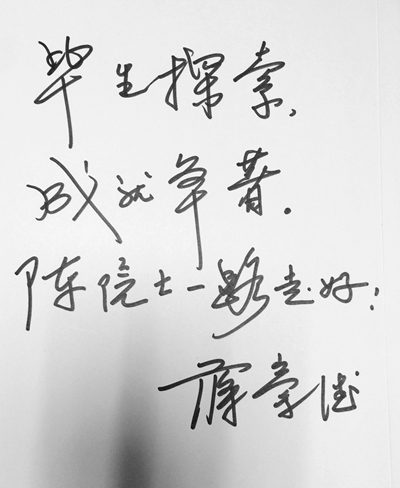 毕生探索,
成就卓著。
陈院士一路走好!
薛